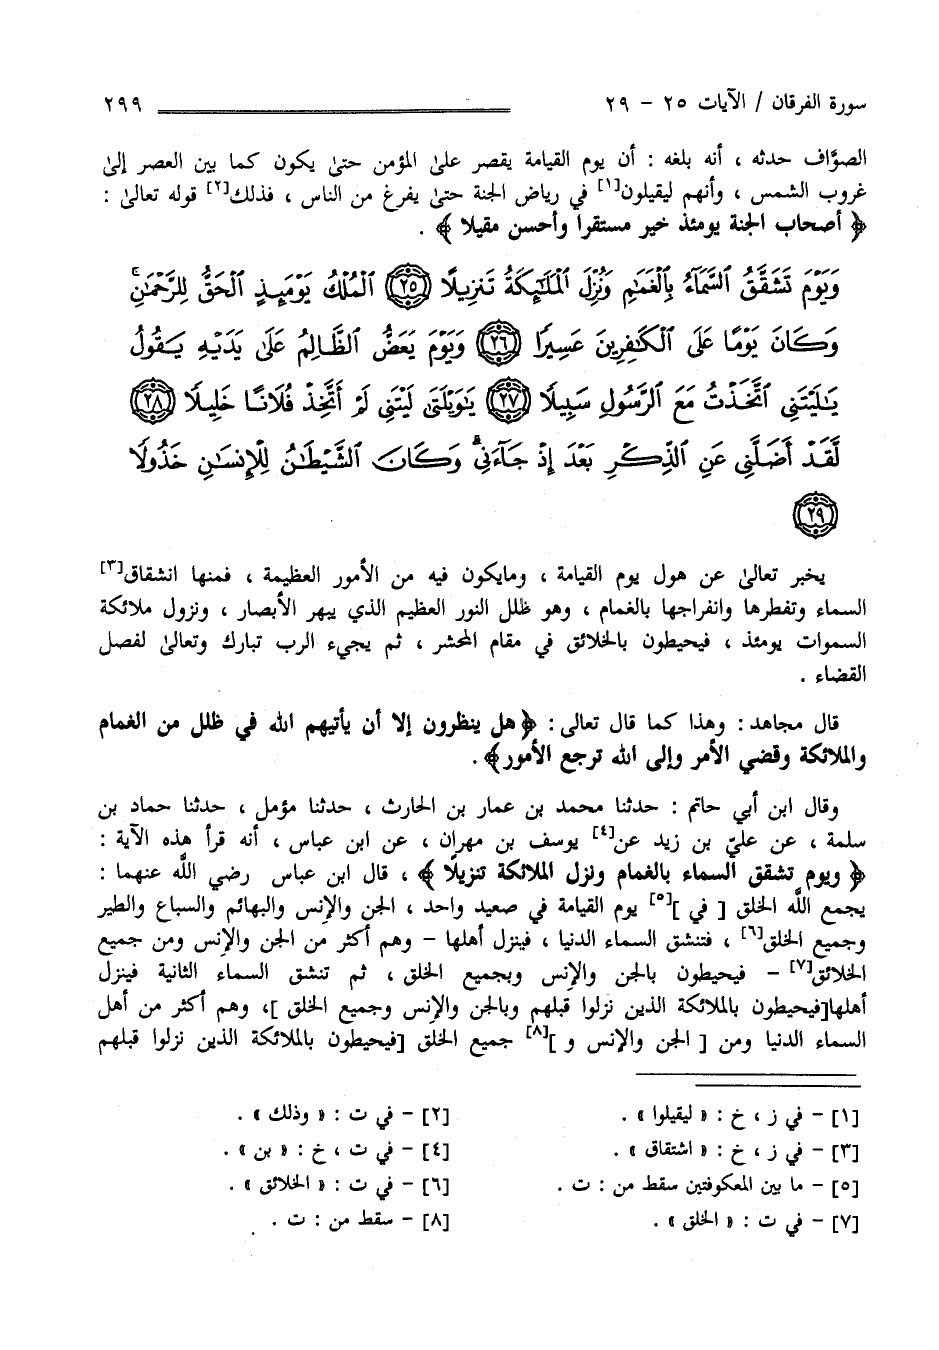 سورة الفرقان / الآيات ٢٥ - ٢٩ ٢٩٩
الصوَّاف حدثه ، أنه بلغه : أن يوم القيامة يقصر علىٰ المؤمن حتىٰ يكون كما بين العصر إلىٰ
غروب الشمس ، وأنهم ليقيلون[١] في رياض الجنة حتىٰ يفرغ من الناس ، فذلك[٢] قوله تعالىٰ :
﴿ أصحاب الجنة يومئذ خير مستقرا وأحسن مقيلا ﴾ .
وَيَوْمَ تَشَقَّقُ ٱلسَّمَآءُ بِٱلْغَمَٰمِ وَنُزِّلَ ٱلْمَلَٰٓئِكَةُ تَنزِيلًا ٢٥ ٱلْمُلْكُ يَوْمَئِذٍ ٱلْحَقُّ لِلرَّحْمَٰنِ ۚ
وَكَانَ يَوْمًا عَلَى ٱلْكَٰفِرِينَ عَسِيرًا ٢٦ وَيَوْمَ يَعَضُّ ٱلظَّالِمُ عَلَىٰ يَدَيْهِ يَقُولُ
يَٰلَيْتَنِى ٱتَّخَذْتُ مَعَ ٱلرَّسُولِ سَبِيلًا ٢٧ يَٰوَيْلَتَىٰ لَيْتَنِى لَمْ أَتَّخِذْ فُلَانًا خَلِيلًا ٢٨
لَّقَدْ أَضَلَّنِى عَنِ ٱلذِّكْرِ بَعْدَ إِذْ جَآءَنِى ۗ وَكَانَ ٱلشَّيْطَٰنُ لِلْإِنسَٰنِ خَذُولًا
٢٩
يخبر تعالىٰ عن هول يوم القيامة ، ومايكون فيه من الأمور العظيمة ، فمنها انشقاق[٣]
السماء وتفطرها وانفراجها بالغمام ، وهو ظلل النور العظيم الذي يبهر الأبصار ، ونزول ملائكة
السموات يومئذ ، فيحيطون بالخلائق في مقام المحشر ، ثم يجيء الرب تبارك وتعالىٰ لفصل
القضاء .
قال مجاهد : وهذا كما قال تعالى : ﴿هل ينظرون إلا أن يأتيهم الله في ظلل من الغمام
والملائكة وقضي الأمر وإلى الله ترجع الأمور﴾ .
وقال ابن أبي حاتم : حدثنا محمد بن عمار بن الحارث ، حدثنا مؤمل ، حدثنا حماد بن
سلمة ، عن عليّ بن زيد عن[٤] يوسف بن مهران ، عن ابن عباس ، أنه قرأ هذه الآية :
﴿ ويوم تشقق السماء بالغمام ونزل الملائكة تنزيلًا ﴾ ، قال ابن عباس رضي اللَّه عنهما :
يجمع اللَّه الخلق [ في ][٥] يوم القيامة في صعيد واحد ، الجن والإنس والبهائم والسباع والطير
وجميع الخلق[٦] ، فتنشق السماء الدنيا ، فينزل أهلها - وهم أكثر من الجن والإنس ومن جميع
الخلائق[٧] - فيحيطون بالجن والإنس وبجميع الخلق ، ثم تنشق السماء الثانية فينزل
أهلها[فيحيطون بالملائكة الذين نزلوا قبلهم وبالجن والإنس وجميع الخلق ]، وهم أكثر من أهل
السماء الدنيا ومن [ الجن والإنس و ][٨] جميع الخلق [فيحيطون بالملائكة الذين نزلوا قبلهم
[١] - في ز ، خ : « ليقيلوا » . [٢] - في ت : « وذلك » .
[٣] - في ز ، خ : « اشتقاق » . [٤] - في ت ، خ : « بن » .
[٥] - ما بين المعكوفتين سقط من : ت . [٦] - في ت : « الخلائق » .
[٧] - في ت : « الخلق » . [٨] - سقط من : ت .